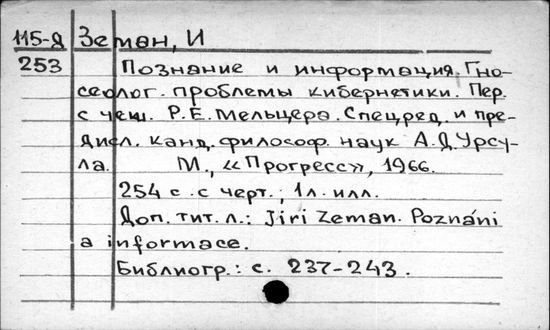 115-Я Земан, И
253 Познание и информация. Гно-
сеолог. проблемы кибернетики. Пер.
с чеш. Р.Е. Мельцера. Спецред. и пре-
дисл. канд. философ. наук А.Д. Урсу-
ла. М., «Прогресс», 1966.
254 с. с черт.; 1 л. илл.
Доп. тит. л.: Jiri Zeman. Poznáni
a informace.
Библиогр.: с. 237-243.